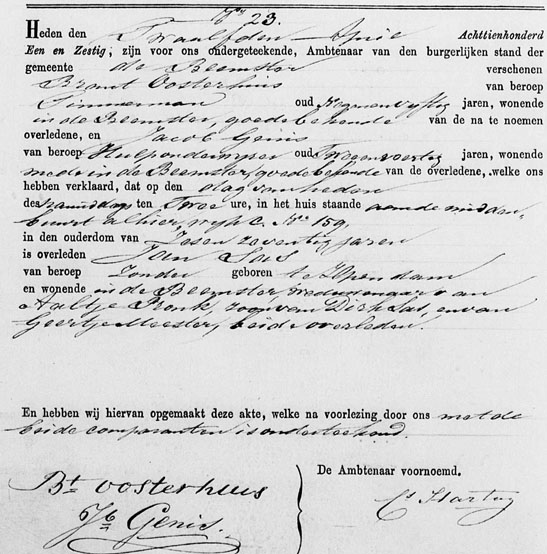 No 23.
Heden den Twaalfden April Achttienhonderd
Een en Zestig, zijn voor ons ondergeteekende, Ambtenaar van den burgerlijken stand der
gemeente de Beemster verschenen
Bernt Oosterhuis van beroep
Timmerman oud jaren, wonende
in de Beemster, goede bekende van de na te noemen
overledene, en Jacob Genis
van beroep oud Twee en veertig jaren, wonende
mede in de Beemster, goede bekende van de overledene, welke ons
hebben verklaard, dat op den dag van heden
des namiddags ten Twee ure, in het huis staande aan de midden
buurt alhier, wijk C. No 159,
in den ouderdom van Zes en zeventig jaren
is overleden Jan Sas
van beroep Zonder geboren te Ilpendam
en wonende in de Beemster, weduwenaar van
Aaltje Pronk, zoon van Dirk Sas, en van
Geertje Meester, beide overleden.
En hebben wij hiervan opgemaakt deze akte, welke na voorlezing door ons met de
beide comparanten is onderteekend.
De Ambtenaar voornoemd.
Bt Oosterhuis
Jb Genis.